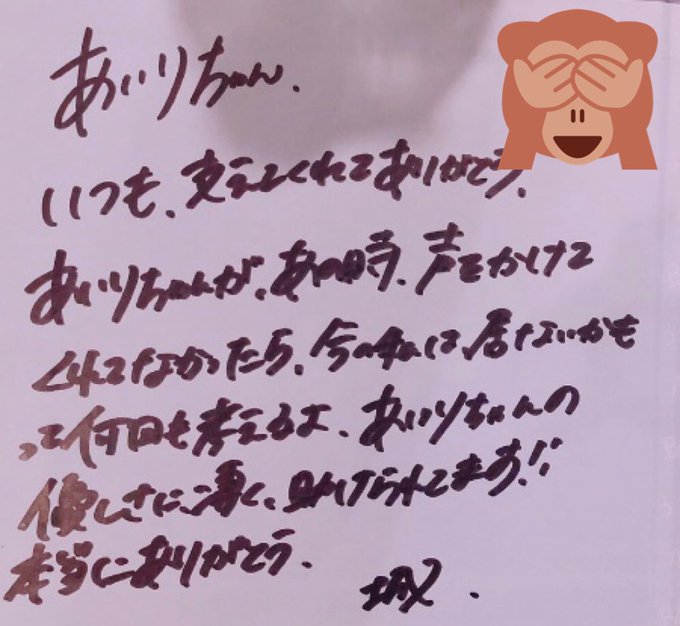 あいりちゃん.
いつも、支えてくれてありがとう.
あいりちゃんが、あの時、声をかけて
くれてなかったら、今の私は、居ないかも
って何回も考えるよ、あいりちゃんの
優しさに、凄く、助けられてます!!
本当にありがとう.